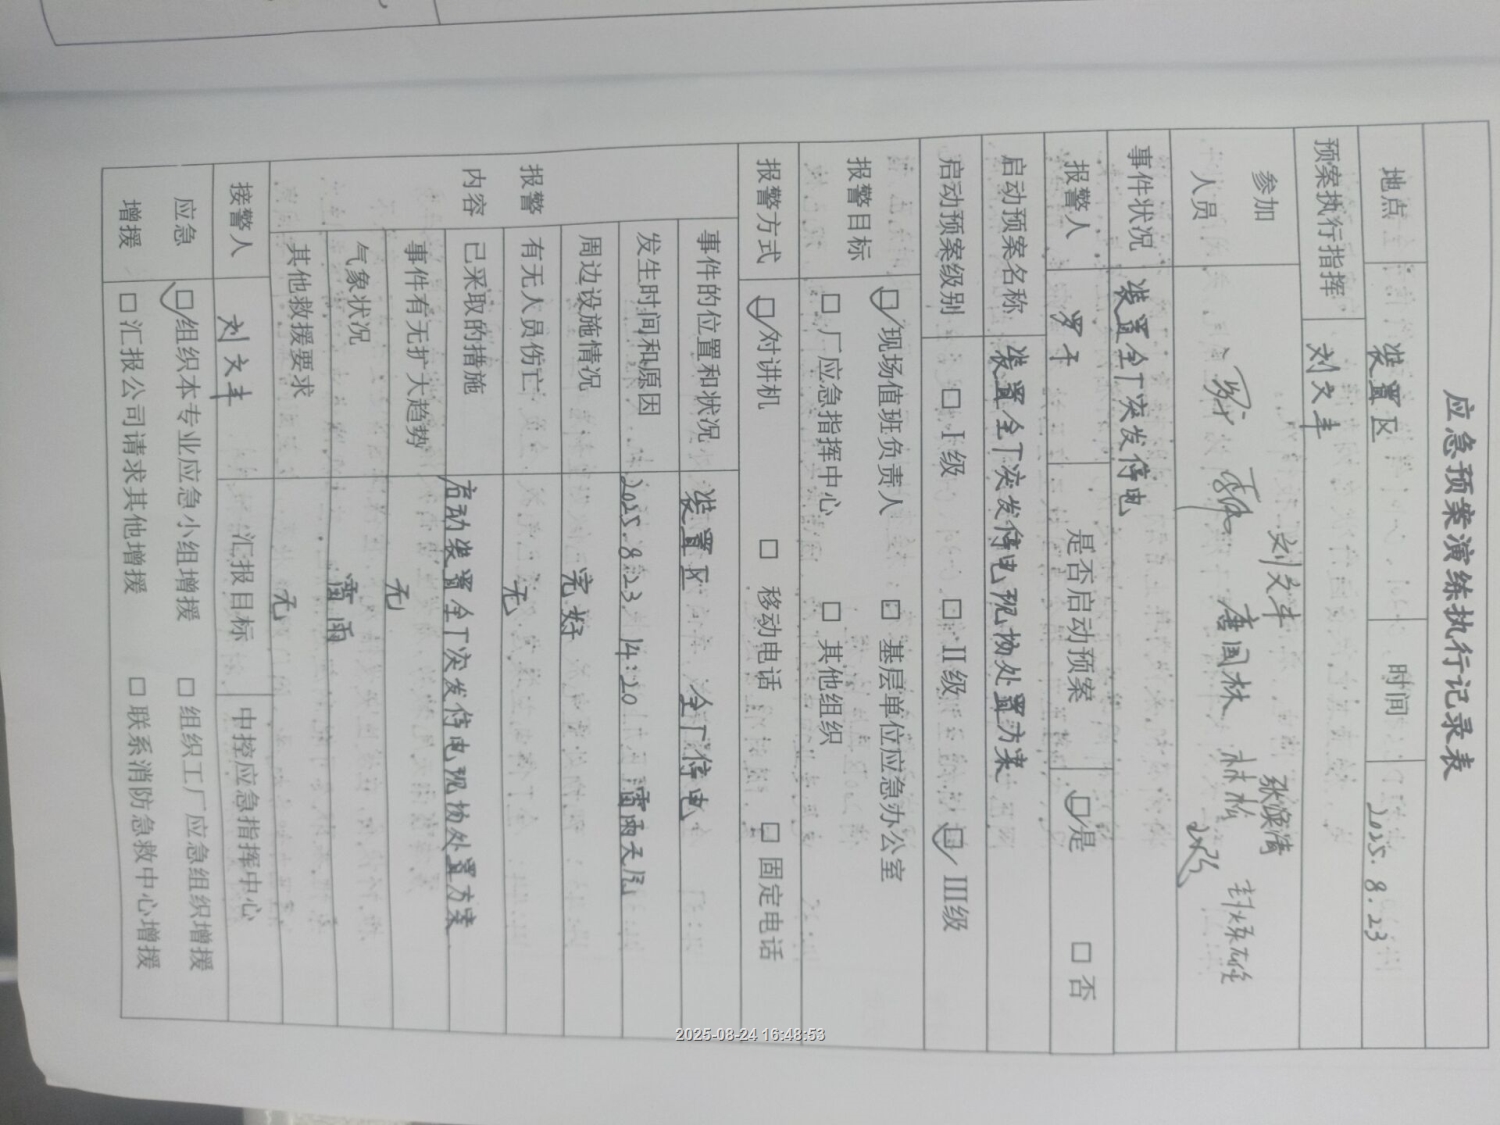 应急预案演练执行记录表
地点 装置区 时间 2025.8.23
预案执行指挥 刘文丰
参加人员 刘文丰 唐国林 林松
事件状况 装置全厂突发停电
报警人 罗干 是否启动预案 ☑是 □否
启动预案名称 装置全厂突发停电现场处置方案
启动预案级别 □ I级 □ II级 ☑ III级
报警目标 ☑现场值班负责人 □ 基层单位应急办公室
□ 厂应急指挥中心 □ 其他组织
报警方式 ☑对讲机 □ 移动电话 □ 固定电话
报警内容
事件的位置和状况 装置区 全厂停电
发生时间和原因 2025.8.23. 14:20 雷雨天气
周边设施情况 完好
有无人员伤亡 无
已采取的措施 启动装置全厂突发停电现场处置方案
事件有无扩大趋势 无
气象状况 雷雨
其他救援要求 无
接警人 刘文丰 汇报目标 中控应急指挥中心
应急增援 ☑组织本专业应急小组增援 □ 组织工厂应急组织增援
□ 汇报公司请求其他增援 □ 联系消防急救中心增援
2025-08-24 16:48:53